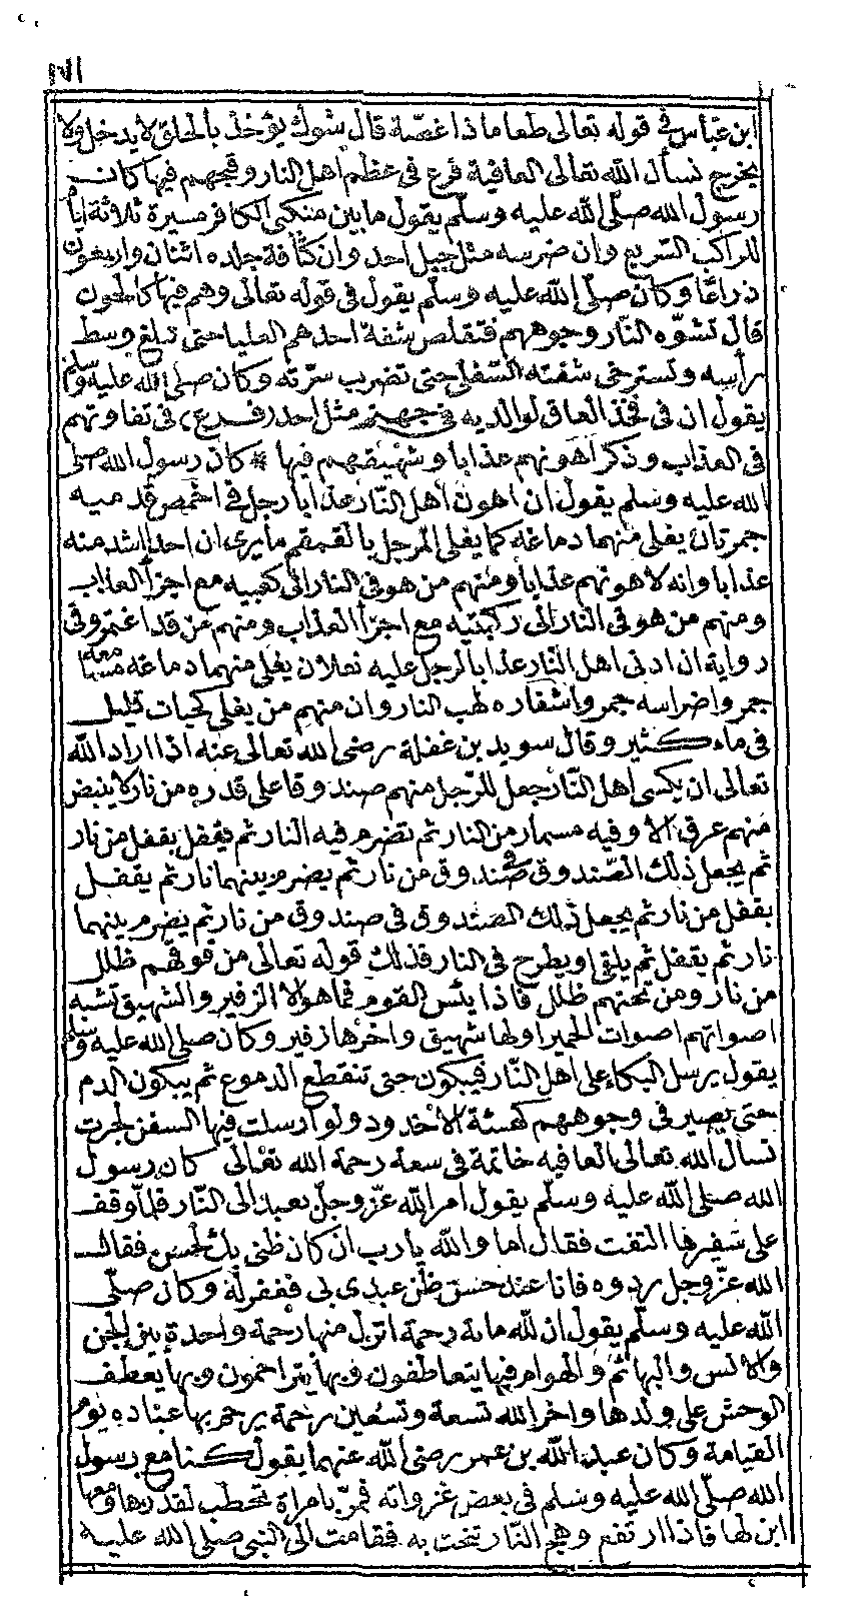 ١٧١
ابن عباس في قوله تعالى طعاما ذا غصة قال شوك يؤخذ بالحلق لا يدخل ولا
يخرج نسأل الله تعالى العافية فرع في عظم أهل النار وقبحهم فيها كان
رسول الله صلى الله عليه وسلم يقول ما بين منكبي الكافر مسيرة ثلاثة أيام
للراكب السريع وان ضرسه مثل جبل احد وان كثافة جلده اثنان واربعون
ذراعا وكان صلى الله عليه وسلم يقول في قوله تعالى وهم فيها كالحون
قال تشوه النار وجوههم فتقلص شفة احدهم العليا حتى تبلغ وسط
رأسه وتسترخى شفته السفلى حتى تضرب سرته وكان صلى الله عليه وسلم
يقول ان في فخذ العاق لوالديه في جهنم مثل احد فرع في تفاوتهم
في العذاب وذكر أهونهم عذابا وشهيقهم فيها * كان رسول الله صلى
الله عليه وسلم يقول ان اهون أهل النار عذابا رجل في اخمص قدميه
جمرتان يغلى منهما دماغه كما يغلى المرجل بالقمقم ما يرى ان احدا اشد منه
عذابا وانه لاهونهم عذابا ومنهم من هو في النار الى كعبيه مع اجزأ العذاب
ومنهم من هو في النار الى ركبتيه مع اجزأ العذاب ومنهم من قد اغتمر وفى
رواية ان ادنى اهل النار عذابا لرجل عليه نعلان يغلى منهما دماغه مسامعه
جمر واضراسه جمر واشفاره لهب النار وان منهم من يغلى كحبات قليل
في ماء كثير وقال سويد بن غفلة رضى الله تعالى عنه اذا اراد الله
تعالى ان يكسى اهل النار جعل للرجل منهم صندوقا على قدره من نار لا ينبض
منهم عرق الا وفيه مسمار من النار ثم تضرم فيه النار ثم يقفل بقفل من نار
ثم يجعل ذلك الصندوق في صندوق من نار ثم يضرم بينهما نار ثم يقفل
بقفل من نار ثم يجعل ذلك الصندوق في صندوق من نار ثم يضرم بينهما
نار ثم يقفل ثم يلقى او يطرح في النار فذلك قوله تعالى من فوقهم ظلل
من نار ومن تحتهم ظلل فاذا يئس القوم فما هو الا الزفير والشهيق تشبه
اصواتهم اصوات الحمير اولها شهيق واخرها زفير وكان صلى الله عليه وسلم
يقول يرسل البكاء على اهل النار فيبكون حتى تنقطع الدموع ثم يبكون الدم
حتى يصير في وجوههم كهيئة الأخدود ولو ارسلت فيها السفن لجرت
نسأل الله تعالى العافيه خاتمة في سعة رحمة الله تعالى كان رسول
الله صلى الله عليه وسلم يقول امر الله عز وجل بعبد الى النار فلما وقف
على شفيرها التفت فقال اما والله يارب ان كان ظنى بك لحسن فقال
الله عز وجل ردوه فانا عند حسن ظن عبدى بى فغفر له وكان صلى
الله عليه وسلم يقول ان لله مائة رحمة انزل منها رحمة واحدة بين الجن
والانس والبهائم والهوام فبها يتعاطفون وبها يتراحمون وبها يعطف
الوحش على ولدها واخر الله تسعة وتسعين رحمة يرحم بها عباده يوم
القيامة وكان عبد الله بن عمر رضى الله عنهما يقول كنا مع رسول
الله صلى الله عليه وسلم في بعض غزواته فمر بامرأة تحطب لقدرها ومعها
ابن لها فاذا ارتفع وهج النار تنحت به فقامت الى النبى صلى الله عليه